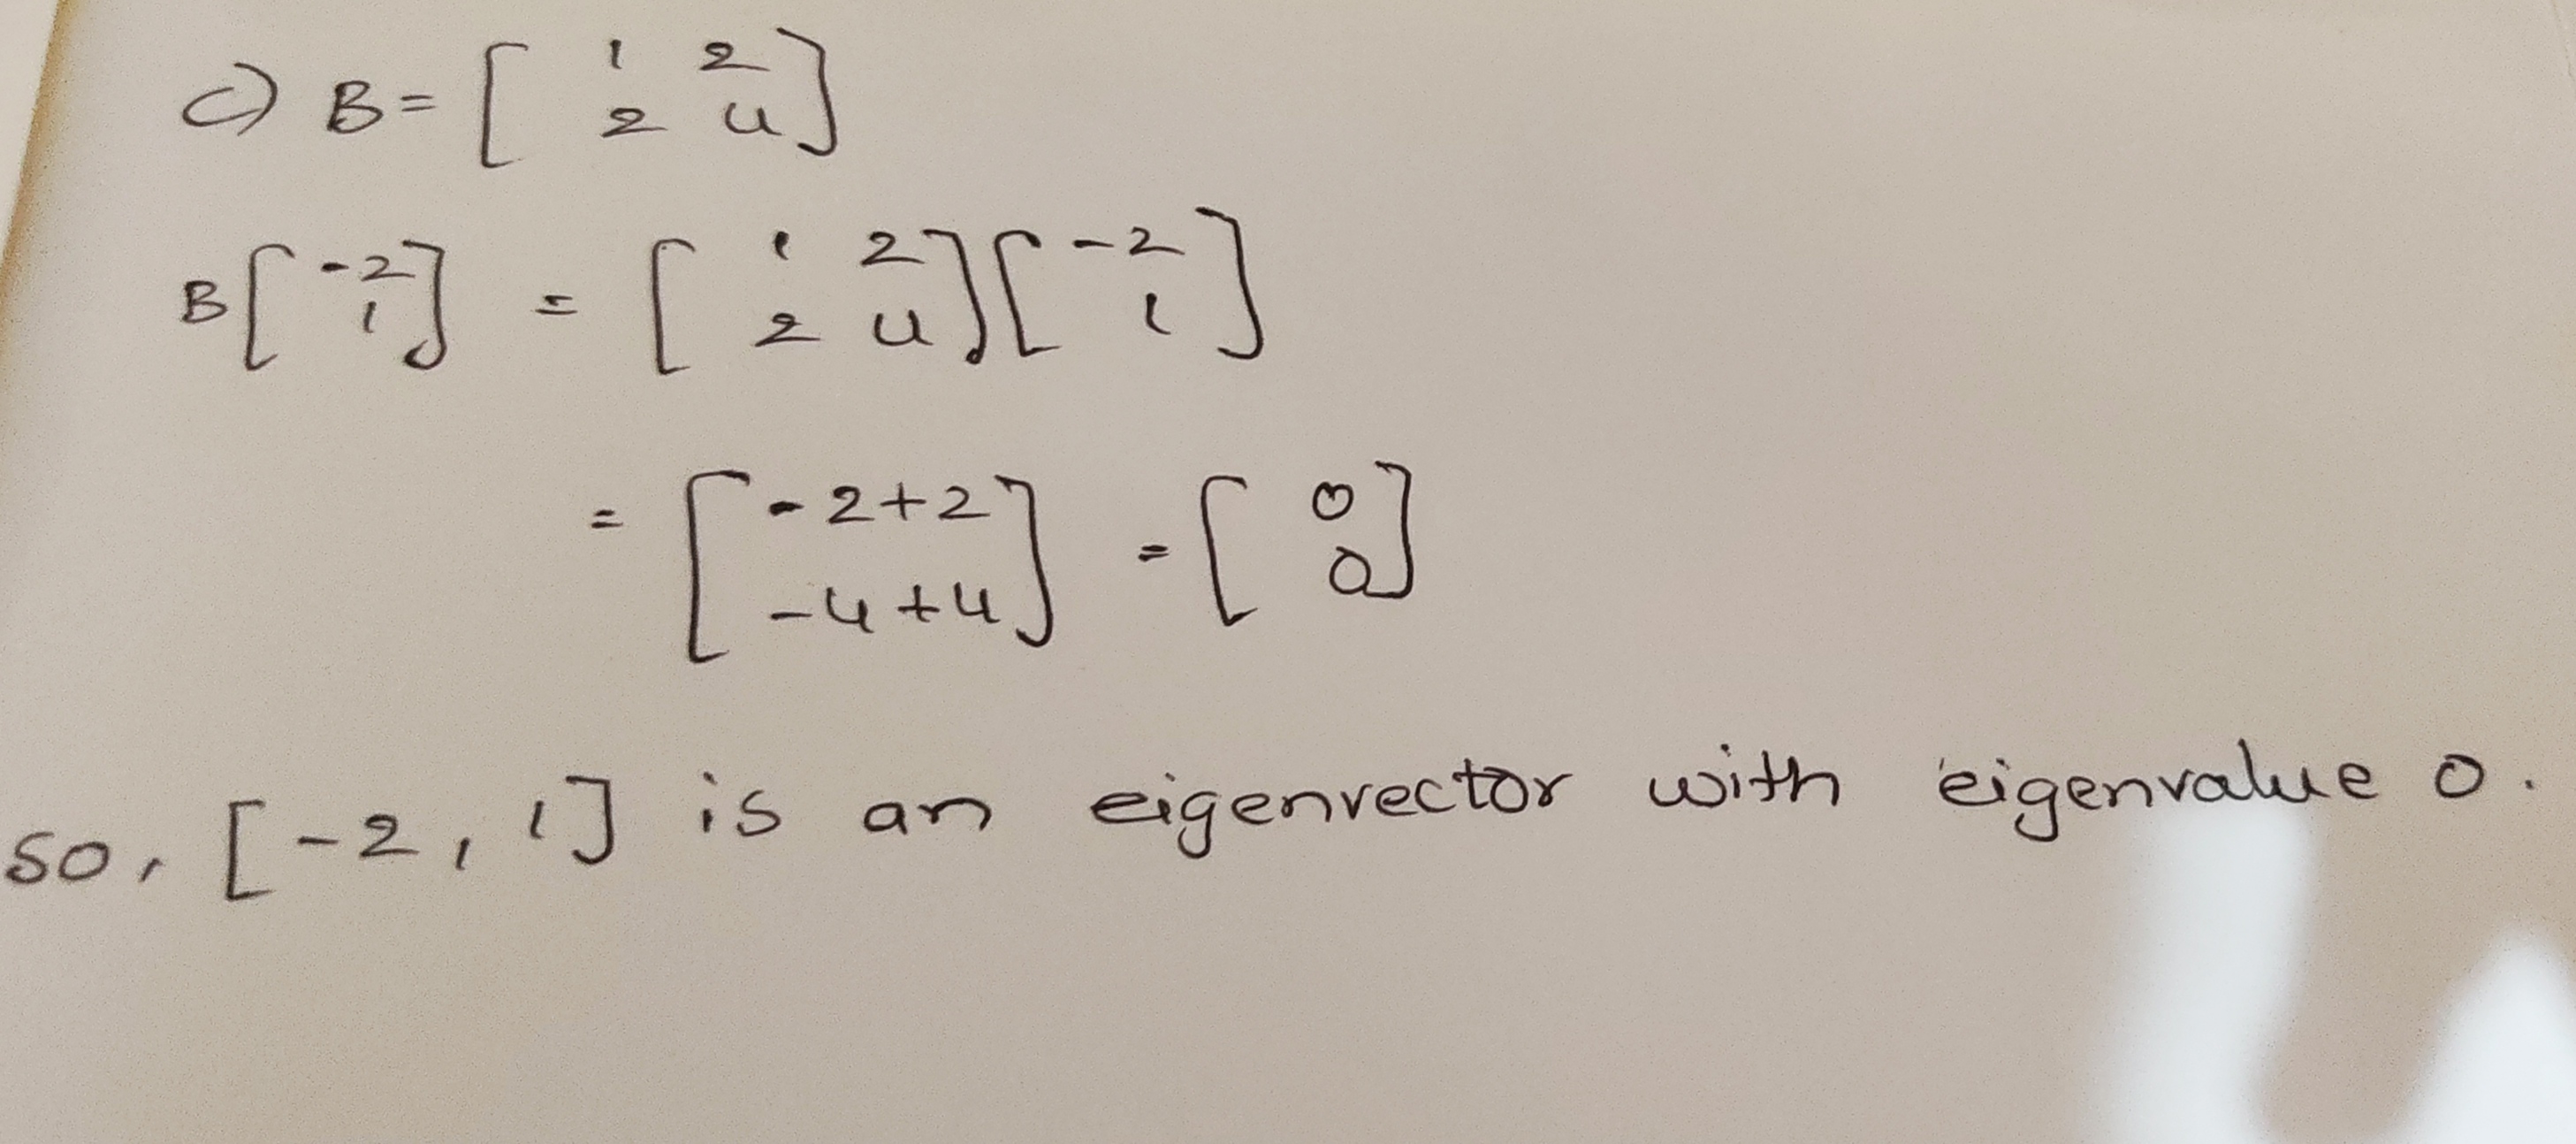 c) B = [ 1 2
2 4 ]
B [ -2
1 ] = [ 1 2
2 4 ] [ -2
1 ]
= [ -2+2
-4+4 ] = [ 0
0 ]
so, [-2, 1] is an eigenvector with eigenvalue 0.